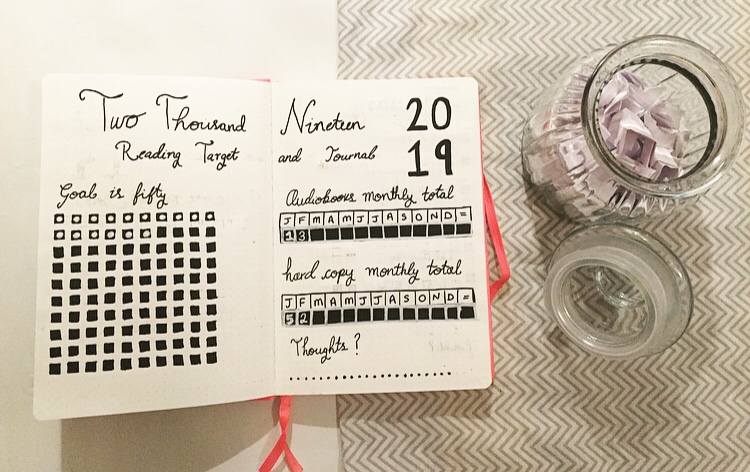 Two Thousand
Reading Target
Goal is fifty
Nineteen 20
and Journal 19
Audiobooks monthly total
J F M A M J J A S O N D =
1 3
hard copy monthly total
J F M A M J J A S O N D =
5 2
Thoughts?